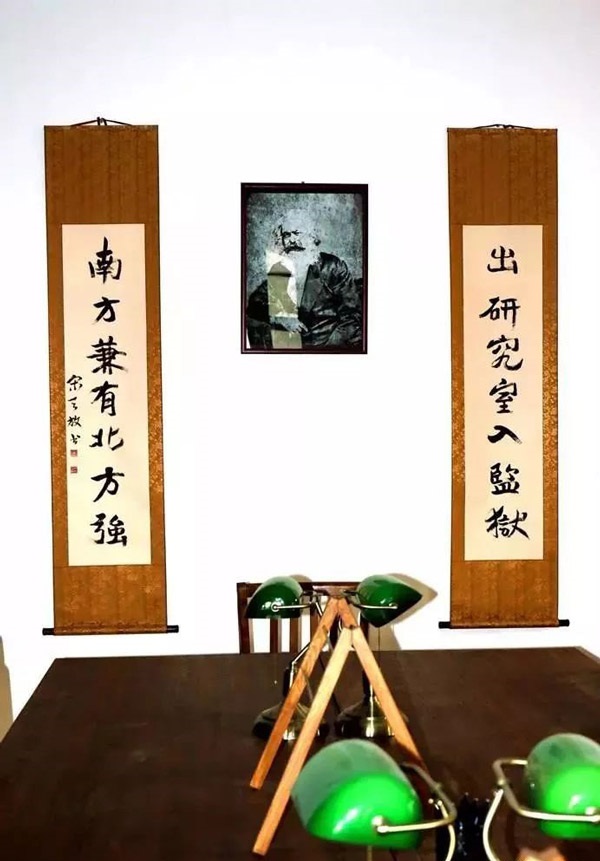 出研究室入監獄
南方兼有北方強